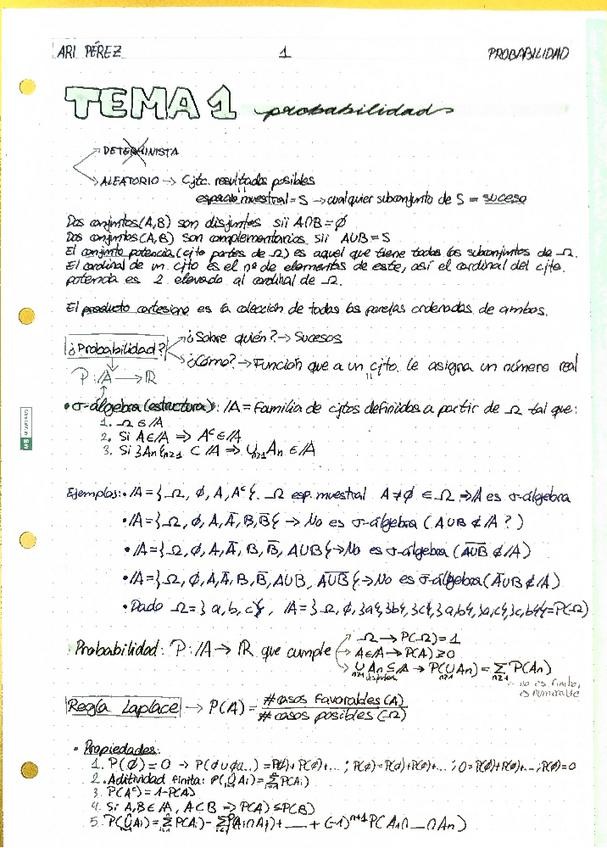 ARI PÉREZ 1 PROBABILIDAD
TEMA 1 probabilidad
DETERMINISTA
ALEATORIO → Cjto. resultados posibles
espacio muestral = S → cualquier subconjunto de S = suceso
Dos conjuntos (A,B) son disjuntos sii A∩B = ∅
Dos conjuntos (A,B) son complementarios sii A∪B = S
El conjunto potencia (cjto partes de Ω) es aquel que tiene todos los subconjuntos de Ω.
El cardinal de un cjto es el nº de elementos de este, así el cardinal del cjto.
potencia es 2 elevado al cardinal de Ω.
El producto cartesiano es la colección de todas las parejas ordenadas de ambos.
¿Probabilidad?
¿Sobre quién? → Sucesos
¿Cómo? → Función que a un cjto. le asigna un número real
P: /A → ℝ
• σ-álgebra (estructura): /A = Familia de cjtos definidos a partir de Ω tal que:
1. Ω ∈ /A
2. Si A ∈ /A ⇒ Aᶜ ∈ /A
3. Si {An}n≥1 ⊂ /A ⇒ ∪n≥1 An ∈ /A
Ejemplos: • /A = {Ω, ∅, A, Aᶜ}. Ω esp. muestral A ≠ ∅ ∈ Ω ⇒ /A es σ-álgebra
• /A = {Ω, ∅, A, Ā, B, B̄} → No es σ-álgebra (A∪B ∉ /A ?)
• /A = {Ω, ∅, A, Ā, B, B̄, A∪B} → No es σ-álgebra (A∪B̅ ∉ /A)
• /A = {Ω, ∅, A, Ā, B, B̄, A∪B, A∪B̅} → No es σ-álgebra (Ā∪B ∉ /A)
• Dado Ω = {a, b, c}, /A = {Ω, ∅, {a}, {b}, {c}, {a,b}, {a,c}, {c,b}} = P(Ω)
Probabilidad: P: /A → ℝ que cumple
Ω → P(Ω) = 1
A ∈ /A → P(A) ≥ 0
∪n≥1 An ⊆ /A → P(∪n≥1 An) = Σn≥1 P(An)
disjuntos
no es finito,
es numerable
Regla Laplace → P(A) = # casos favorables (A) / # casos posibles (Ω)
• Propiedades:
1. P(∅) = 0 → P(∅∪∅∪...) = P(∅)+P(∅)+... ; P(∅) = P(∅)+P(∅)+... ; 0 = P(∅)+P(∅)+... ; P(∅) = 0
2. Aditividad finita: P(∪Ai) = ΣP(Ai)
3. P(Aᶜ) = 1-P(A)
4. Si A,B ∈ /A, A⊂B ⇒ P(A) ≤ P(B)
5. P(∪Ai) = ΣP(Ai) - ΣP(Ai∩Aj) + __ + (-1)ⁿ⁺¹ P(A1∩__∩An)